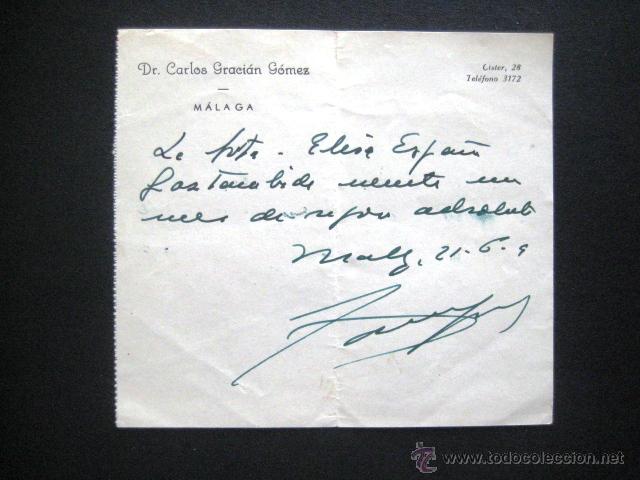 Dr. Carlos Gracián Gómez
MÁLAGA
Cister, 28
Teléfono 3172
La Srta. Elisa España
Gaztambide necesita un
mes de reposo absoluto
Malg, 21-6-9
todocoleccion
www.todocoleccion.net